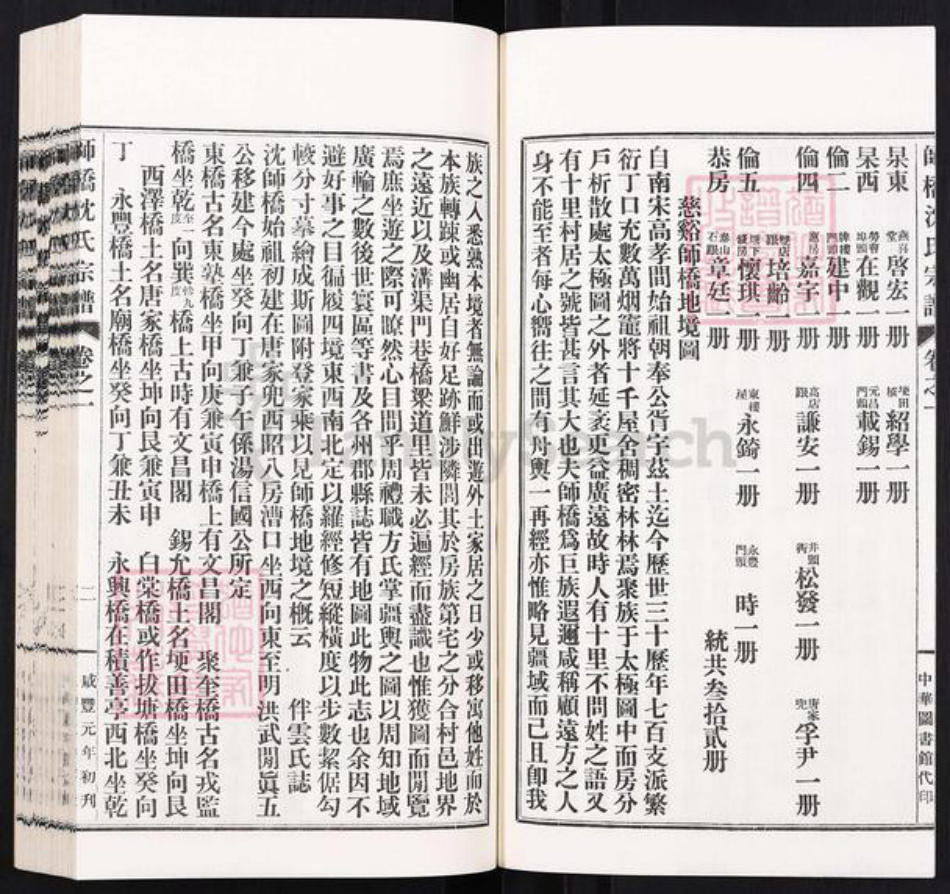 師橋沈氏宗譜 卷之一
中華圖書館代印
杲東 燕喜堂 啓宏一册 埂田橋 紹學一册
杲西 勞寳埠頭 在觀一册 元昌門頭 載錫一册
倫二 牌樓門頭 建中一册
倫四 嘉房 嘉宇一册 高店跟 謙安一册 井頭衖 松發一册 唐家兜 孚尹一册
雙店跟 培齡一册
倫五 懷琪一册 東樓屋 永錡一册 永豐門頭 時一册
恭房 泰山石跟 章廷一册 統共叁拾貳册
慈谿師橋地境圖
自南宋高孝間始祖朝奉公胥宇茲土迄今歷世三十歷年七百支派繁
衍丁口充數萬烟竈將十千屋舍稠密林林焉聚族于太極圖中而房分
戶析散處太極圖之外者延袤更益廣遠故時人有十里不問姓之語又
有十里村居之號皆甚言其大也夫師橋爲巨族遐邇咸稱顧遠方之人
身不能至者每心嚮往之間有舟輿一再經亦惟略見疆域而已且卽我
族之人悉熟本境者無論而或出遊外土家居之日少或移寓他姓而於
本族轉踈或幽居自好足跡鮮涉隣閭其於房族第宅之分合村邑地界
之遠近以及溝渠門巷橋梁道里皆未必遍經而盡識也惟獲圖而閒覽
焉庶坐遊之際可瞭然心目間乎周禮職方氏掌疆輿之圖以周知地域
廣輪之數後世寰區等書及各州郡縣誌皆有地圖此物此志也余因不
避好事之目徧履四境東西南北定以羅經修短縱橫度以步數絜倨勾
較分寸摹繪成斯圖附登家乘以見師橋地境之槪云 伴雲氏誌
沈師橋始祖初建在唐家兜西昭八房漕口坐西向東至明洪武閒眞五
公移建今處坐癸向丁兼子午係湯信國公所定
東橋古名東塾橋坐甲向庚兼寅申橋上有文昌閣 聚奎橋古名戎監
橋坐乾 向巽 橋上古時有文昌閣 錫允橋土名埂田橋坐坤向艮
西澤橋土名唐家橋坐坤向艮兼寅申 白棠橋或作拔塘橋坐癸向
丁 永豐橋土名廟橋坐癸向丁兼丑未 永興橋在積善亭西北坐乾
師橋沈氏宗譜 卷之一 二 咸豐元年初刊